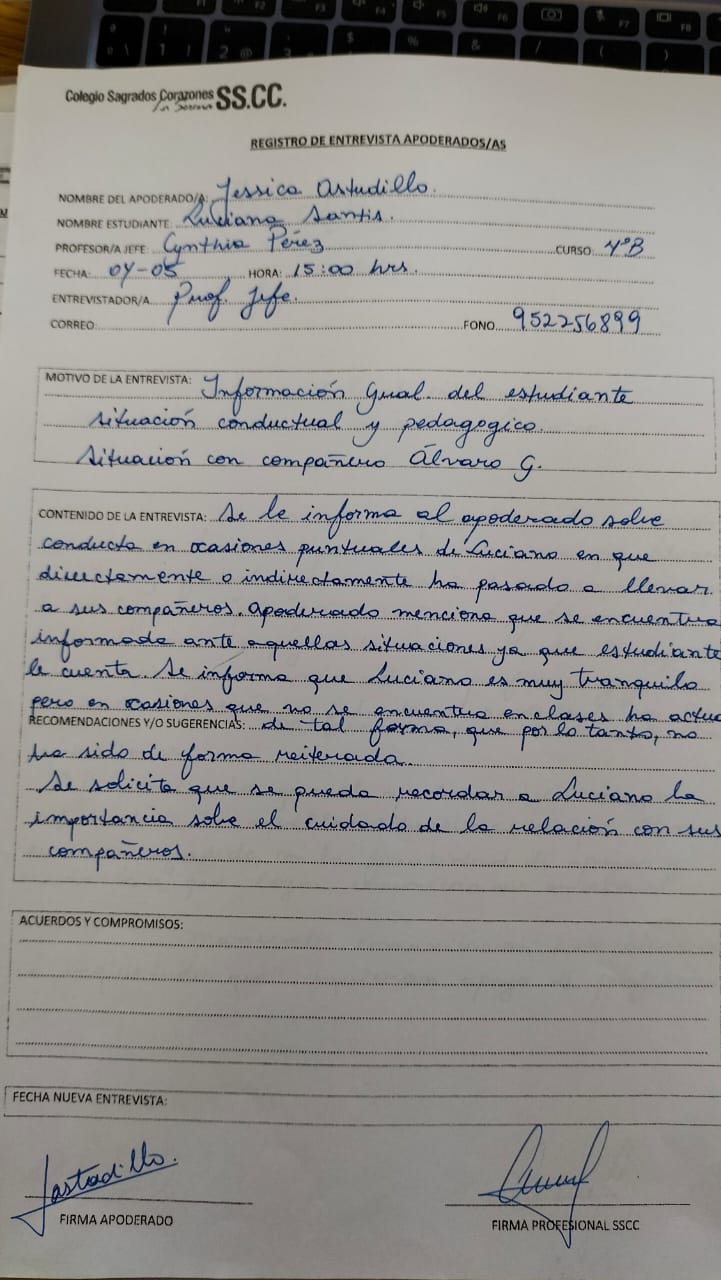 Colegio Sagrados Corazones SS.CC.
La Serena
REGISTRO DE ENTREVISTA APODERADOS/AS
NOMBRE DEL APODERADO/A: Jessica Astudillo.
NOMBRE ESTUDIANTE: Luciano Santis.
PROFESOR/A JEFE: Cynthia Pérez CURSO: 4°B
FECHA: 04-05 HORA: 15:00 hrs.
ENTREVISTADOR/A Prof. Jefe.
CORREO FONO 952256899
MOTIVO DE LA ENTREVISTA: Información Gual. del estudiante
situación conductual y pedagogico.
Situación con compañero Álvaro G.
CONTENIDO DE LA ENTREVISTA: Se le informa al apoderado sobre
conducta en ocasiones puntuales de Luciano en que
directamente o indirectamente ha pasado a llevar
a sus compañeros. Apoderado menciona que se encuentra
informada ante aquellas situaciones ya que estudiante
le cuenta. Se informa que Luciano es muy tranquilo
pero en ocasiones que no se encuentra en clases ha actua
RECOMENDACIONES Y/O SUGERENCIAS: de tal forma, que por lo tanto, no
ha sido de forma reiterada.
Se solicita que se pueda recordar a Luciano la
importancia sobre el cuidado de la relación con sus
compañeros.
ACUERDOS Y COMPROMISOS:
FECHA NUEVA ENTREVISTA:
Jastudillo.
FIRMA APODERADO
FIRMA PROFESIONAL SSCC